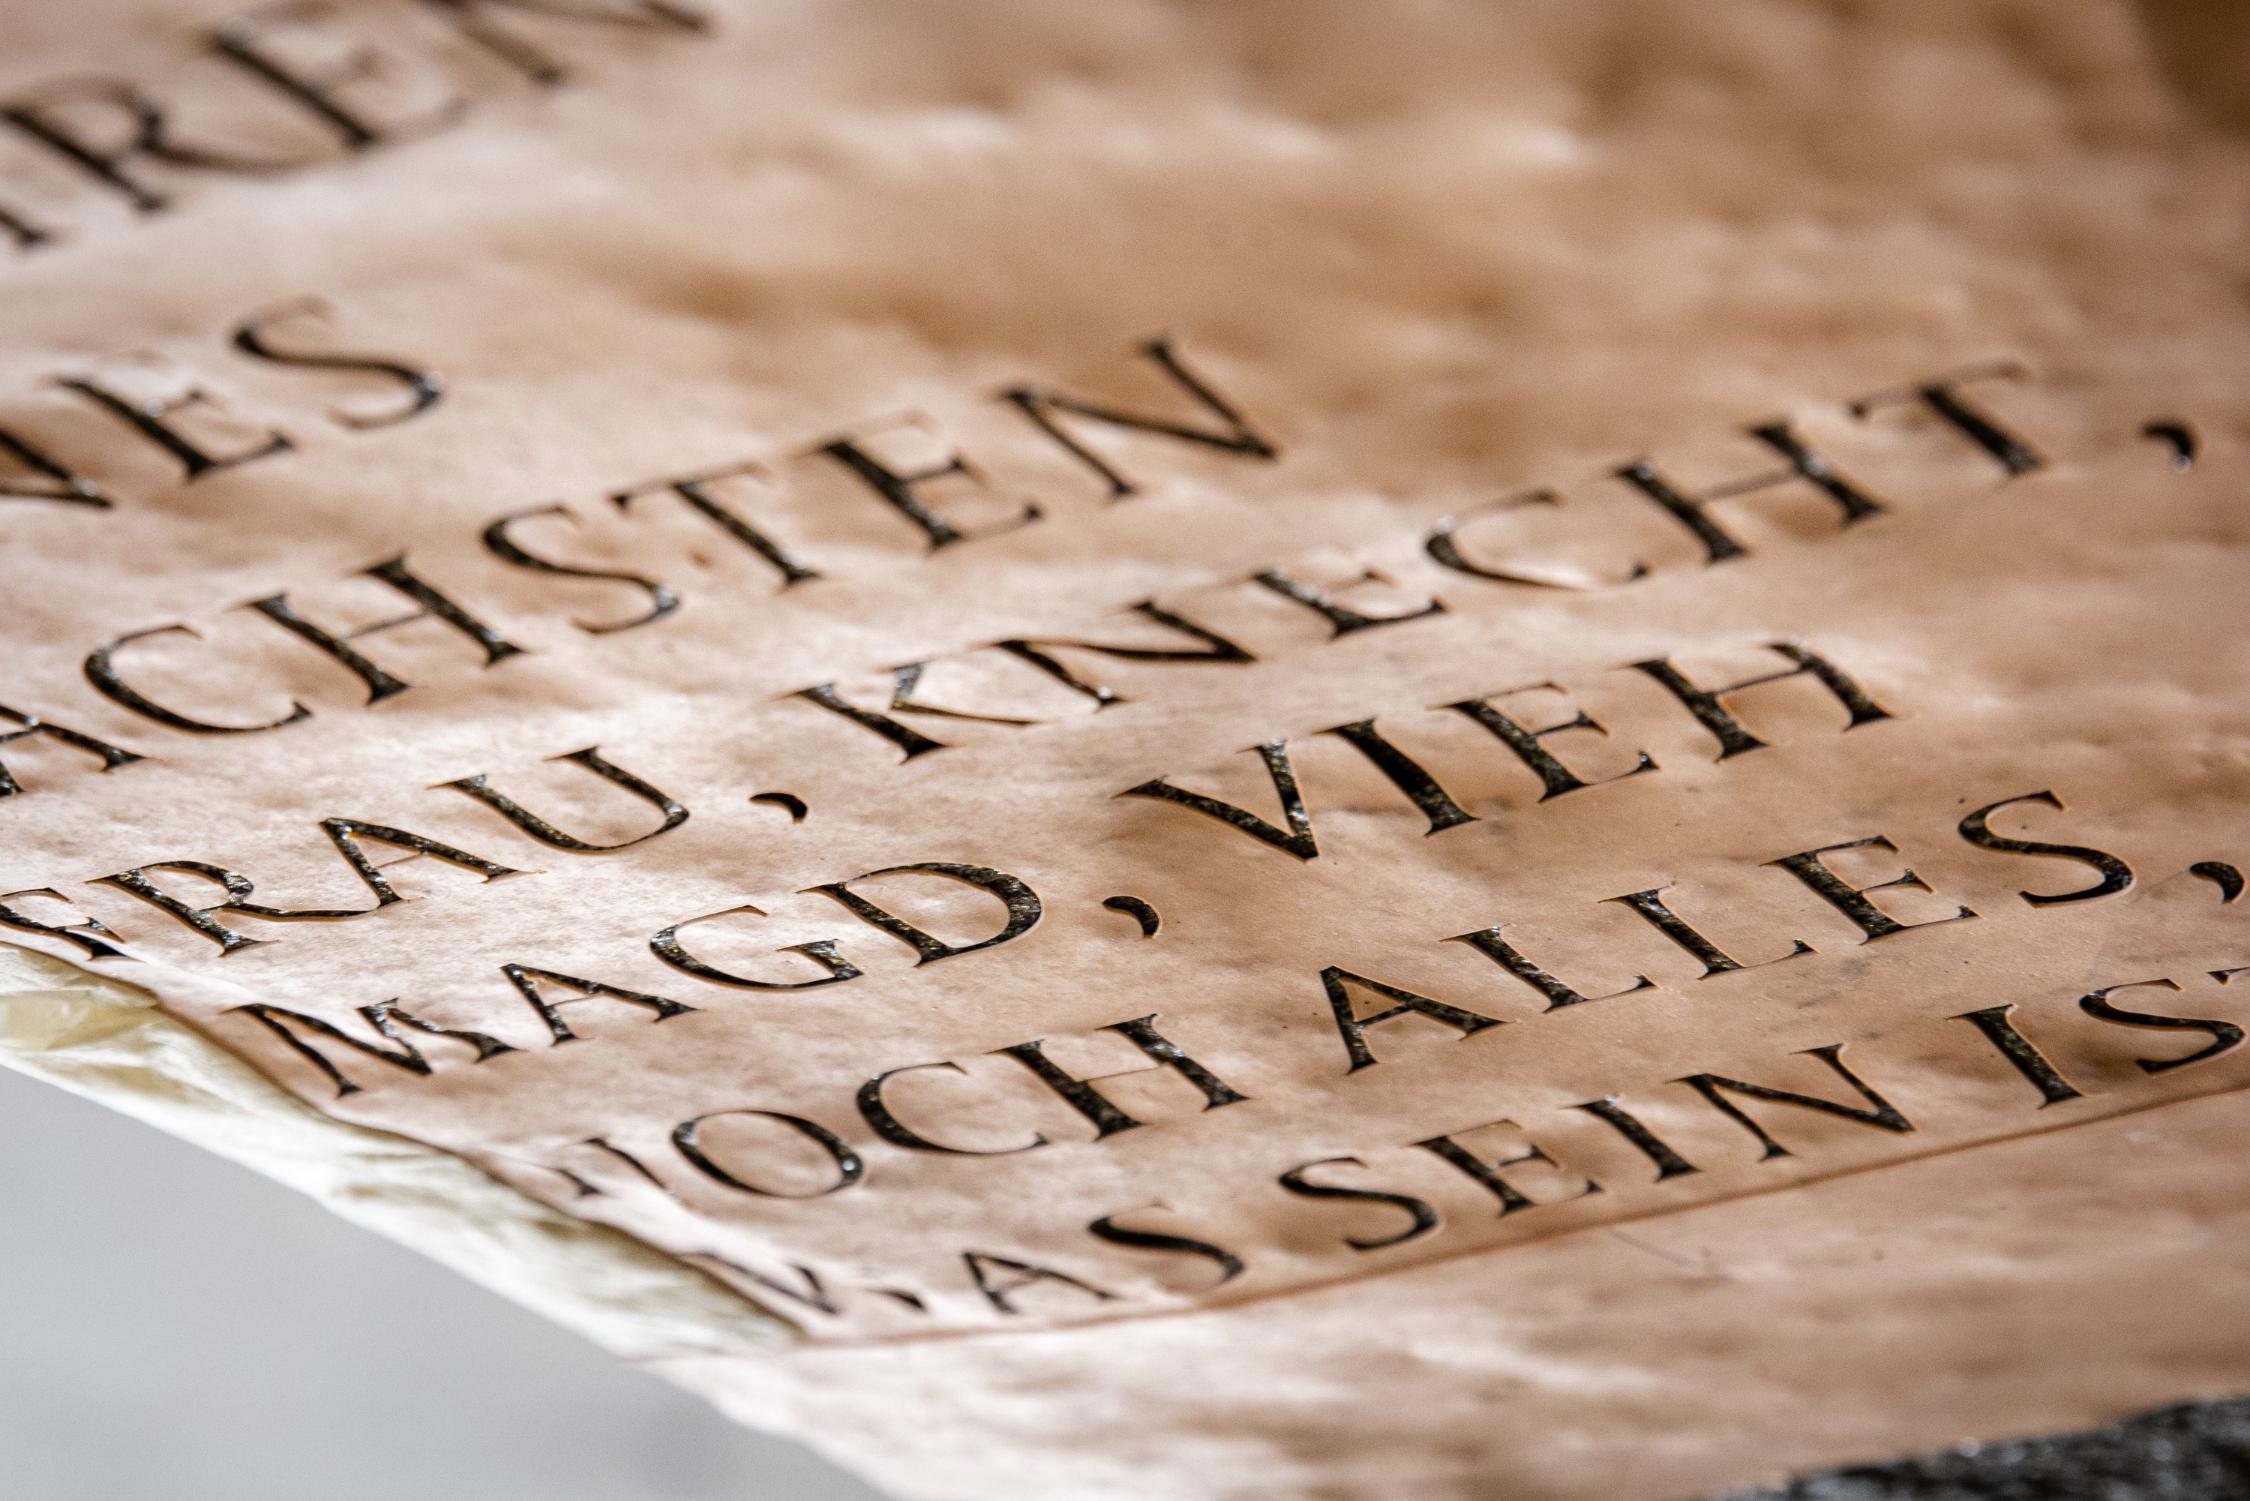 NES
ACHSTEN
FRAU, KNECHT,
MAGD, VIEH
NOCH ALLES,
WAS SEIN IST